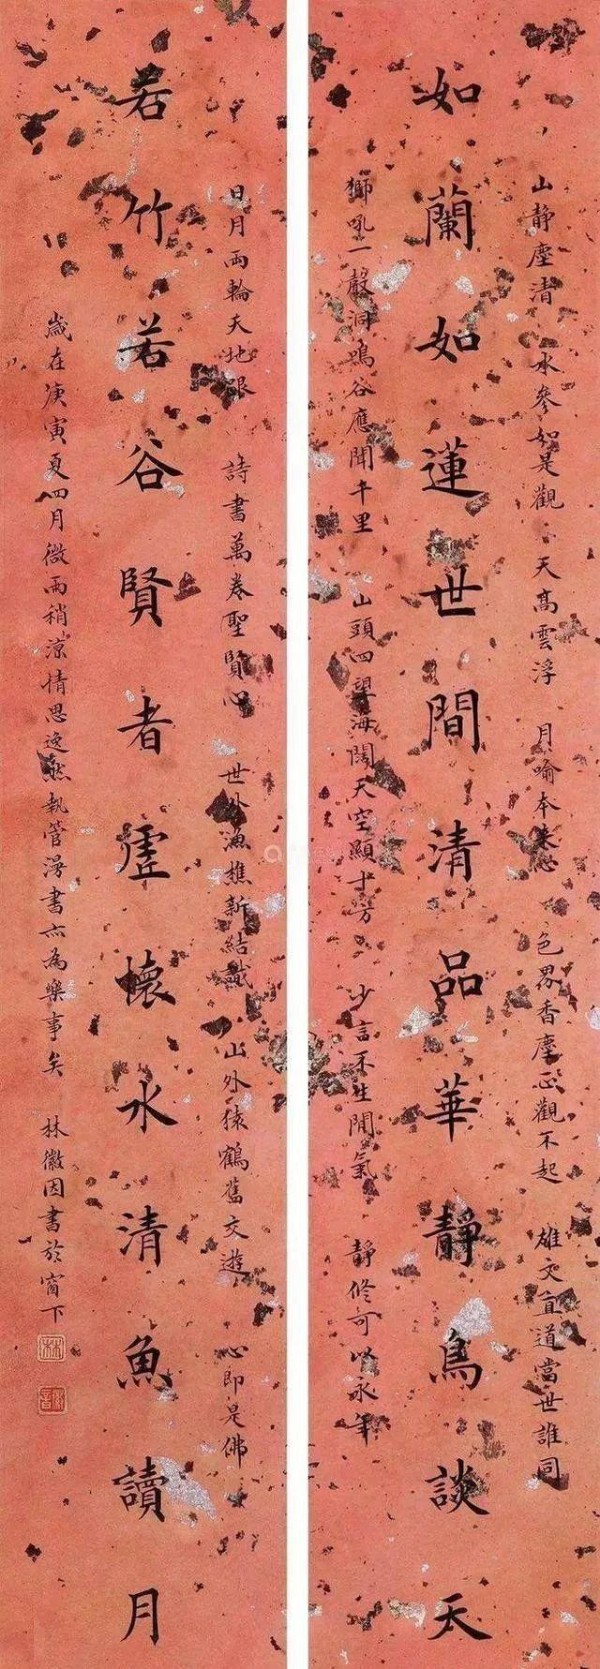 山靜塵清 水參如是觀 天高雲浮 月喻本来心 色界香塵正觀不起 雄文直道當世誰同
如蘭如蓮世間清品華靜鳥談天
獅吼一聲洞鳴谷應聞千里 山頭四望海闊天空顯十方 少言不生閒氣 靜修可以永年
日月兩輪天地眼 詩書萬卷聖賢心 世外漁樵新結 山外猿鶴舊交遊 心即是佛
若竹若谷賢者虛懷水清魚讀月
歲在庚寅夏四月微雨稍涼情思逸然執管漫書亦為樂事矣 林徽因書於窗下